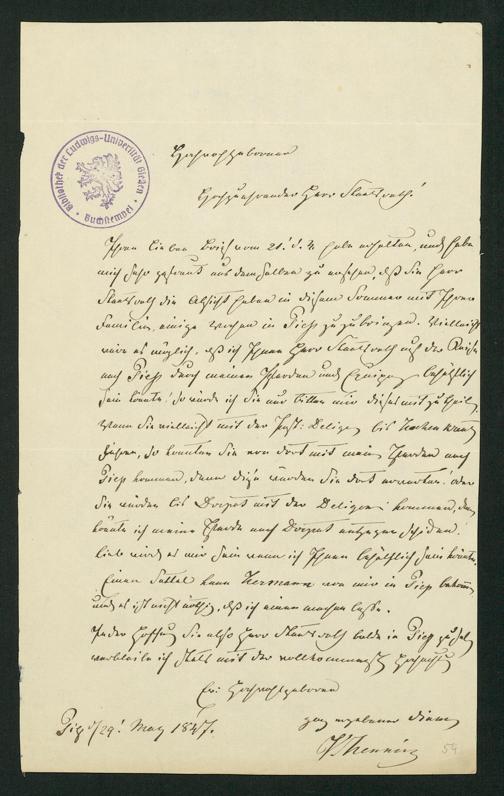 Bibliothek der Ludwigs-Universität Gießen
Buchstempel
Hochwohlgeborener
Hochzuehrender Herr Staatsrath!
Ihren lieben Brief vom 21! d. M. habe erhalten, und habe
mich sehr gefreut aus demselben zu ersehen, daß Sie Herr
Staatsrath die Absicht haben in diesem Sommer mit Ihrer
Familie einige Wochen in Piep zuzubringen. Vielleicht
wäre es möglich, daß ich Ihnen Herr Staatsrath auf der Reise
nach Piep durch meine Pferde und Equipage behülflich
sein könnte; so würde ich Sie nur bitten mir dieses mitzutheilen.
Wenn Sie vielleicht mit der Post: Deligence bis
fahren, so könnten Sie von dort mit meinen Pferden nach
Piep kommen, denn diese würden Sie dort erwarten! oder
Sie würden bis Dorpat mit der Deligence kommen, dann
könnte ich meine Pferde nach Dorpat entgegen schicken!
lieb wird es mir sein wenn ich Ihnen behülflich sein könnte.
Einen Sattel kann Hermann von mir in Piep bekommen
und es ist nicht nöthig, daß ich einen machen lasse.
In der Hoffnung Sie also Herr Staatsrath balde in Piep zu sehen
verbleibe ich stets mit der vollkommensten Hochachtung
Ew: Hochwohlgeboren
Piep d. 29! May 1847.
ganz ergebener Diener
54